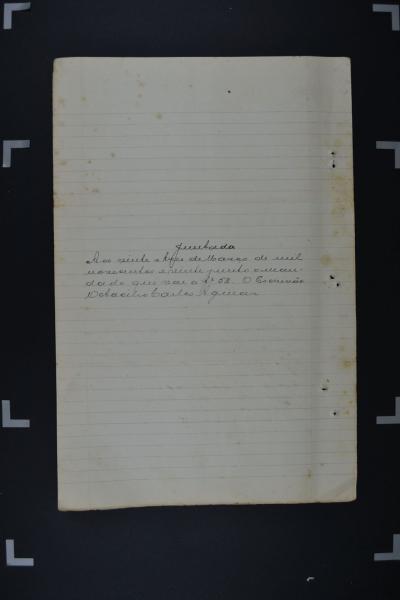 Juntada
Aos vinte e tres de Março de mil
novecentos e vinte junto o man-
dado que vae a fs 58. O Escrivão
Carlos Aguiar